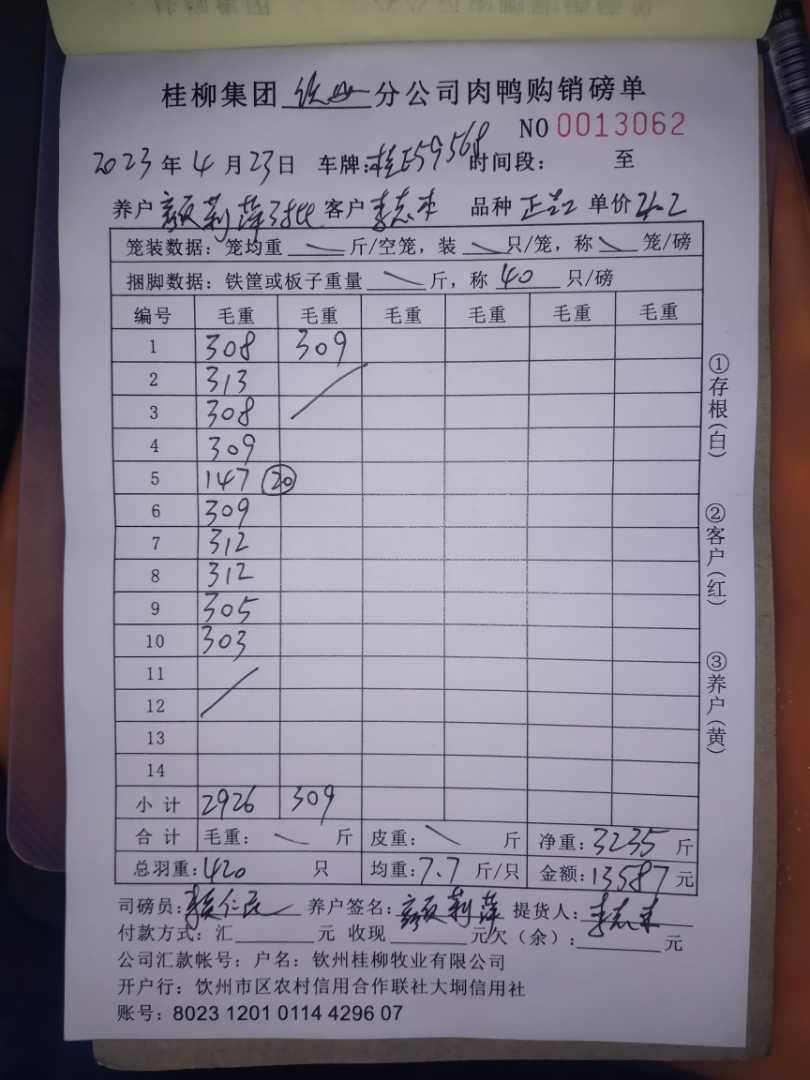 桂柳集团 钦州 分公司肉鸭购销磅单
NO 0013062
2023 年 4 月 23 日 车牌: 桂E59568 时间段: 至
养户 颜莉萍 客户 李志 品种 正品 单价 4.2
笼装数据: 笼均重 斤/空笼, 装 只/笼, 称 笼/磅
捆脚数据: 铁筐或板子重量 斤, 称 40 只/磅
编号 毛重 毛重 毛重 毛重 毛重 毛重
1 308 309
2 313
3 308
4 309
5 147 20
6 309
7 312
8 312
9 305
10 303
11
12
13
14
小计 2926 309
合计 毛重: 斤 皮重: 斤 净重: 3235 斤
总羽重: 420 只 均重: 7.7 斤/只 金额: 13587 元
司磅员: 仁民 养户签名: 颜莉萍 提货人: 李志
付款方式: 汇 元 收现 元 欠(余): 元
公司汇款帐号: 户名: 钦州桂柳牧业有限公司
开户行: 饮州市区农村信用合作联社大垌信用社
账号: 8023 1201 0114 4296 07
①存根(白)
②客户(红)
③养户(黄)